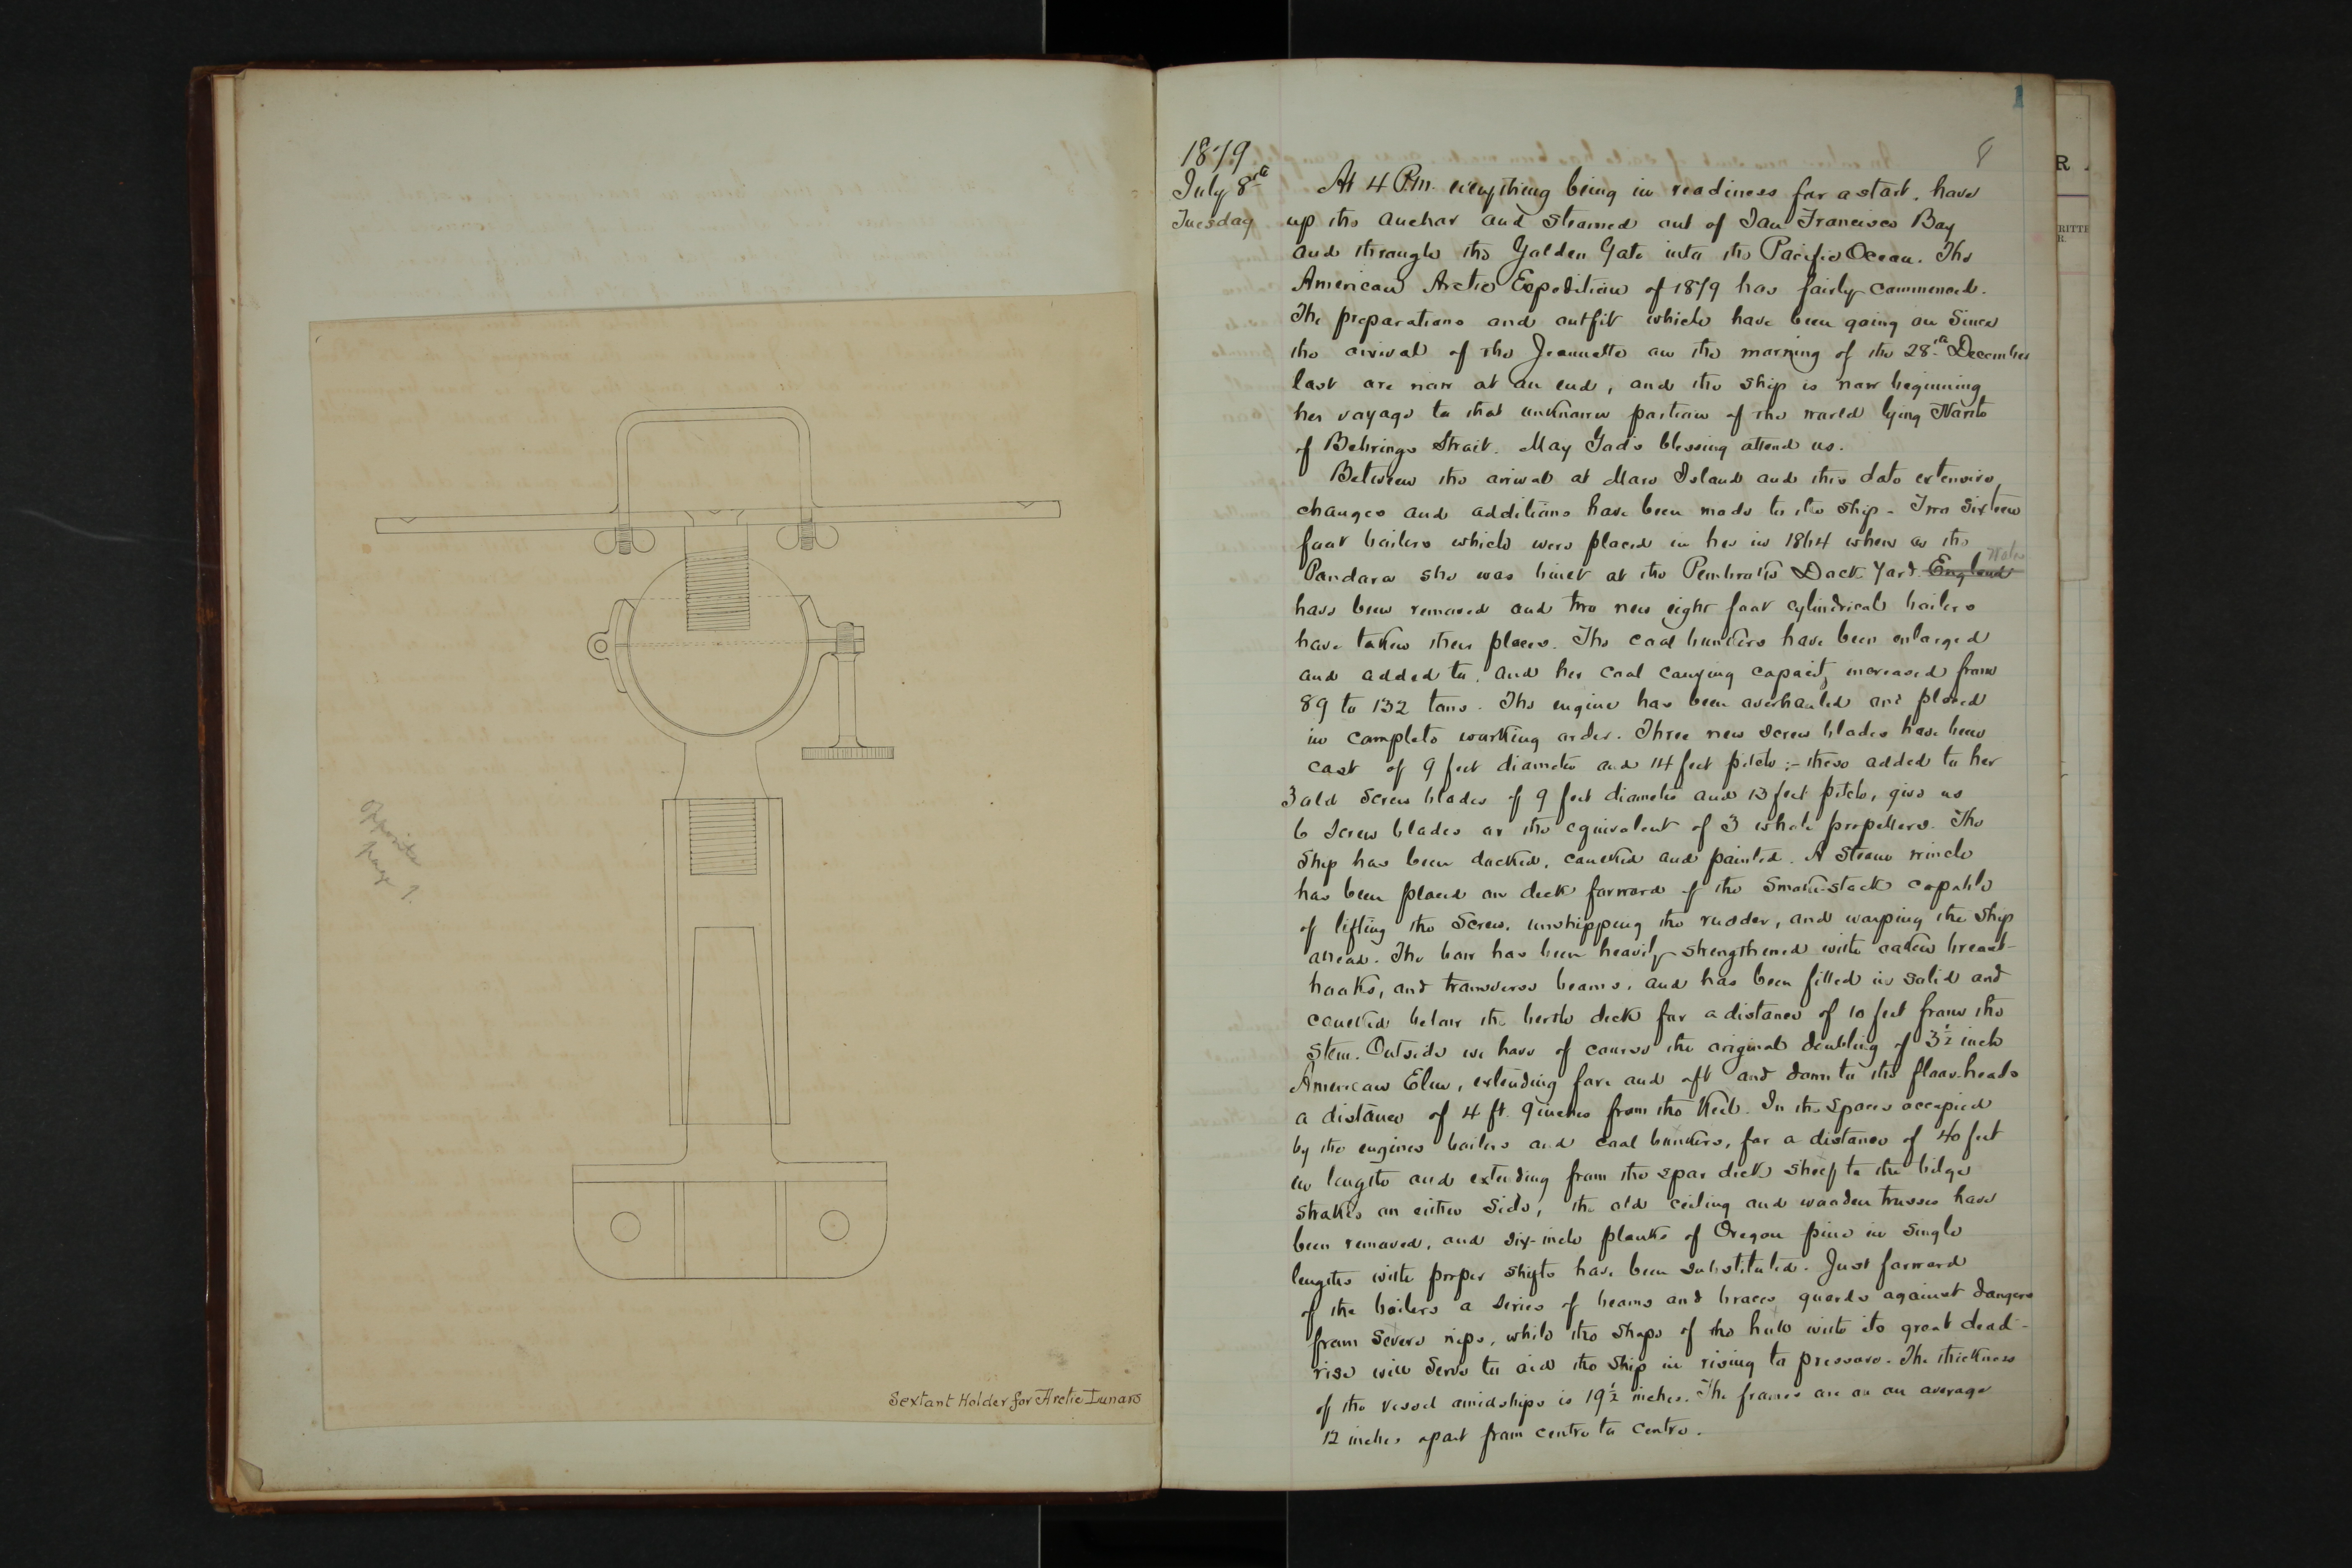 opposite
page 1.
Sextant Holder for Arctic Lunars
1
8
1879
July 8th
Tuesday
At 4 P.M. everything being in readiness for a start, hove
up the anchor and steamed out of San Francisco Bay
and through the Golden Gate into the Pacific Ocean. The
American Arctic Expedition of 1879 has fairly commenced.
The preparations and outfit which have been going on since
the arrival of the Jeannette on the morning of the 28th December
last are now at an end, and the ship is now beginning
her voyage to that unknown portion of the world lying North
of Behrings Strait. May God's blessing attend us.
Between the arrival at Mare Island and this date extensive
changes and additions have been made to the ship - Two sixteen
foot boilers which were placed in her in 1864 when as the
Pandora she was built at the Pembroke Dock Yard England Wales
have been removed and two new eight foot cylindrical boilers
have taken their places. The coal bunkers have been enlarged
and added to, and her coal carrying capacity increased from
89 to 132 tons. The engine has been overhauled and placed
in complete working order. Three new screw blades have been
cast of 9 feet diameter and 14 feet pitch; - these added to her
3 old screw blades of 9 feet diameter and 13 feet pitch, give us
6 screw blades or the equivalent of 3 whole propellers. The
ship has been docked, caulked and painted. A steam winch
has been placed on deck forward of the smoke-stack capable
of lifting the screw, unshipping the rudder, and warping the ship
ahead. The bow has been heavily strengthened with oaken breast-
hooks, and transverse beams, and has been filled in solid and
caulked below the berth deck for a distance of 10 feet from the
stem. Outside we have of course the original doubling of 3½ inch
American Elm, extending fore and aft and down to the floor-heads
a distance of 4 ft. 9 inches from the keel. In the spaces occupied
by the engines boilers and coal bunkers, for a distance of 40 feet
in length and extending from the spar deck shelf to the bilge
strakes on either side, the old ceiling and wooden trusses have
been removed, and six-inch planks of Oregon pine in single
lengths with proper shifts have been substituted. Just forward
of the boilers a series of beams and braces guards against dangers
from severe nips, while the shape of the hull with its great dead-
rise will serve to aid the ship in rising to pressure. The thickness
of the vessel amidships is 19½ inches. The frames are on an average
12 inches apart from centre to centre.
R
RITTE
R.